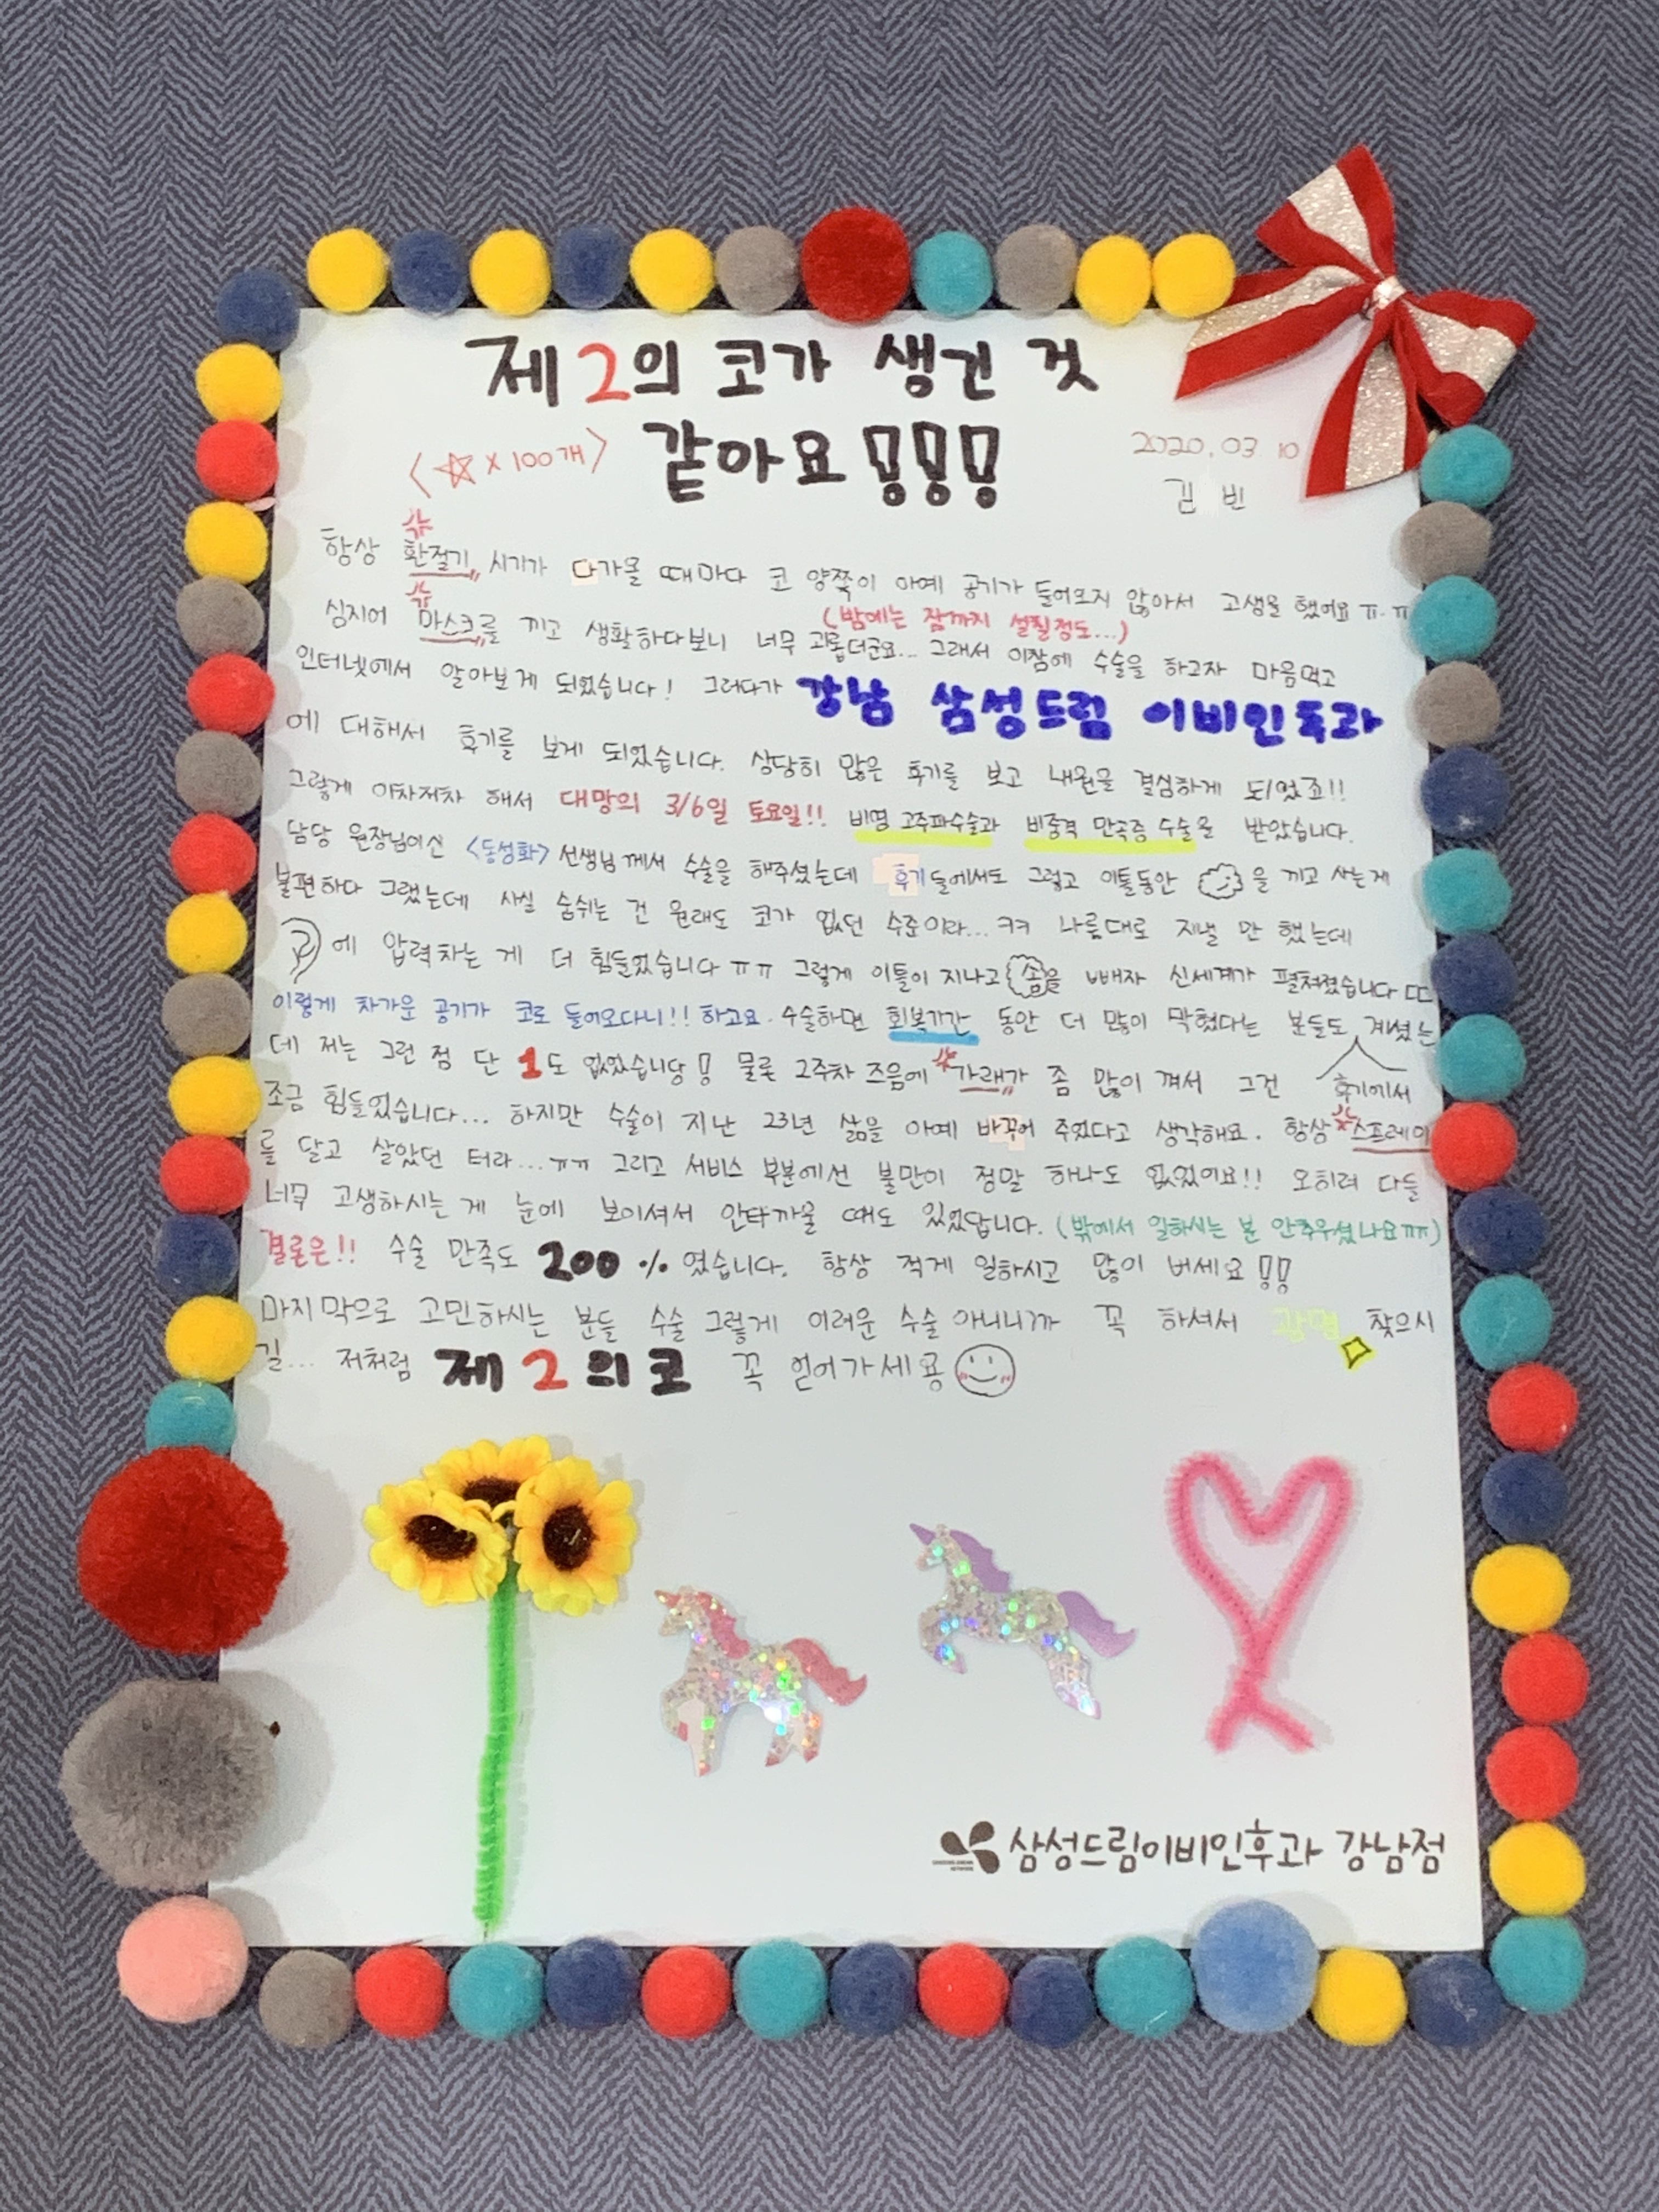 제2의 코가 생긴 것
<☆ x 100개> 같아요!!!
2020.03.10
김 빈
항상 환절기 시기가 다가올 때마다 코 양쪽이 아예 공기가 들어오지 않아서 고생을 했어요 ㅠ.ㅠ
(밤에는 잠까지 설칠정도...)
심지어 마스크를 끼고 생활하다보니 너무 괴롭더군요... 그래서 이참에 수술을 하고자 마음먹고
인터넷에서 알아보게 되었습니다! 그러다가 강남 삼성드림 이비인후과
에 대해서 후기를 보게 되었습니다. 상당히 많은 후기를 보고 내원을 결심하게 되었죠!!
그렇게 이차저차 해서 대망의 3/6일 토요일!! 비염 고주파수술과 비중격 만곡증 수술을 받았습니다.
담당 원장님이신 <동성화> 선생님께서 수술을 해주셨는데 후기들에서도 그렇고 이틀동안 을 끼고 사는게
불편하다 그랬는데 사실 숨쉬는 건 원래도 코가 없던 수준이라... ㅋㅋ 나름대로 지낼 만 했는데
에 압력차는 게 더 힘들었습니다 ㅠㅠ 그렇게 이틀이 지나고 솜을 빼자 신세계가 펼쳐졌습니다 ㄷㄷ
이렇게 차가운 공기가 코로 들어오다니!! 하고요. 수술하면 회복기간 동안 더 많이 막혔다는 분들도 계셨는
데 저는 그런 점 단 1도 없었습니당! 물론 2주차 즈음에 가래가 좀 많이 껴서 그건 후기에서
조금 힘들었습니다... 하지만 수술이 지난 23년 삶을 아예 바꾸어 주었다고 생각해요. 항상 스프레이
를 달고 살았던 터라...ㅠㅠ 그리고 서비스 부분에선 불만이 정말 하나도 없었어요!! 오히려 다들
너무 고생하시는 게 눈에 보이셔서 안타까울 때도 있었답니다. (밖에서 일하시는 분 안추우셨나요ㅠㅠ)
결론은!! 수술 만족도 200 % 였습니다. 항상 적게 일하시고 많이 버세요!!
마지막으로 고민하시는 분들 수술 그렇게 어려운 수술 아니니까 꼭 하셔서 광명 찾으시
길... 저처럼 제 2 의 코 꼭 얻어가세용
삼성드림이비인후과 강남점